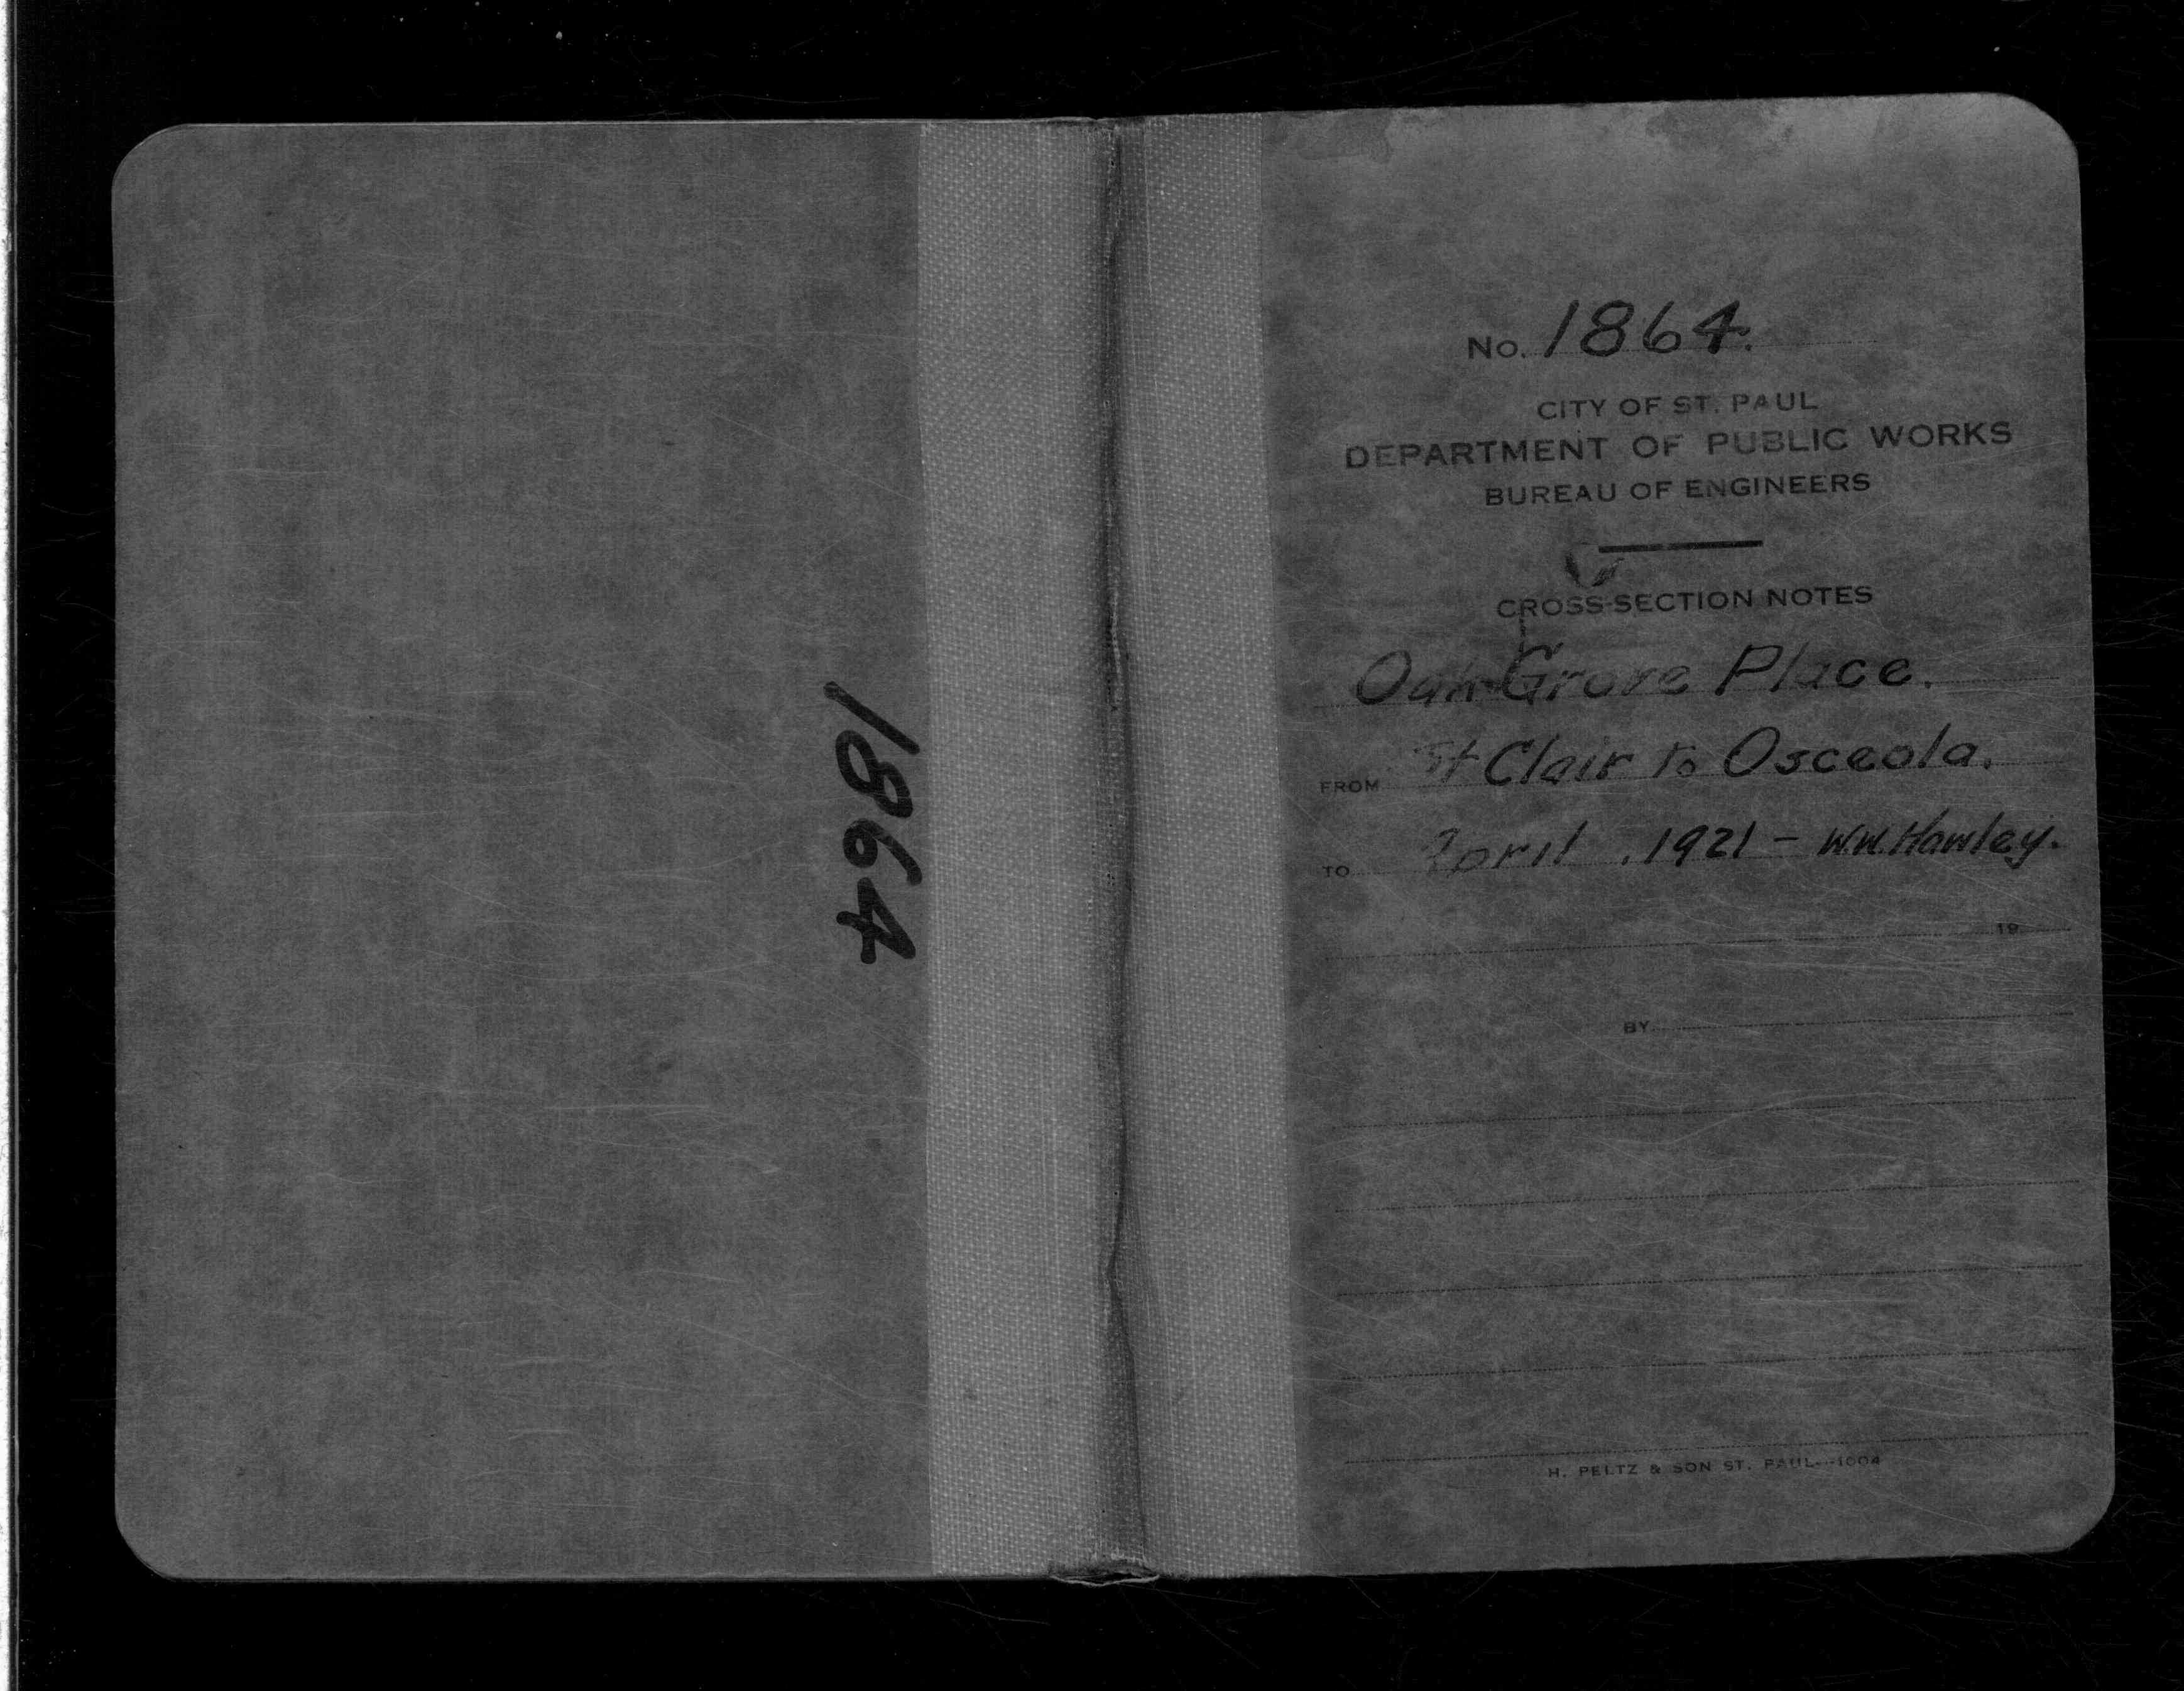 1864
No. 1864.
CITY OF ST. PAUL
DEPARTMENT OF PUBLIC WORKS
BUREAU OF ENGINEERS
CROSS-SECTION NOTES
Oak Grove Place.
FROM St Clair to Osceola.
TO April, 1921 - W.W. Hawley.
19
BY
H. PELTZ & SON ST. PAUL--1004